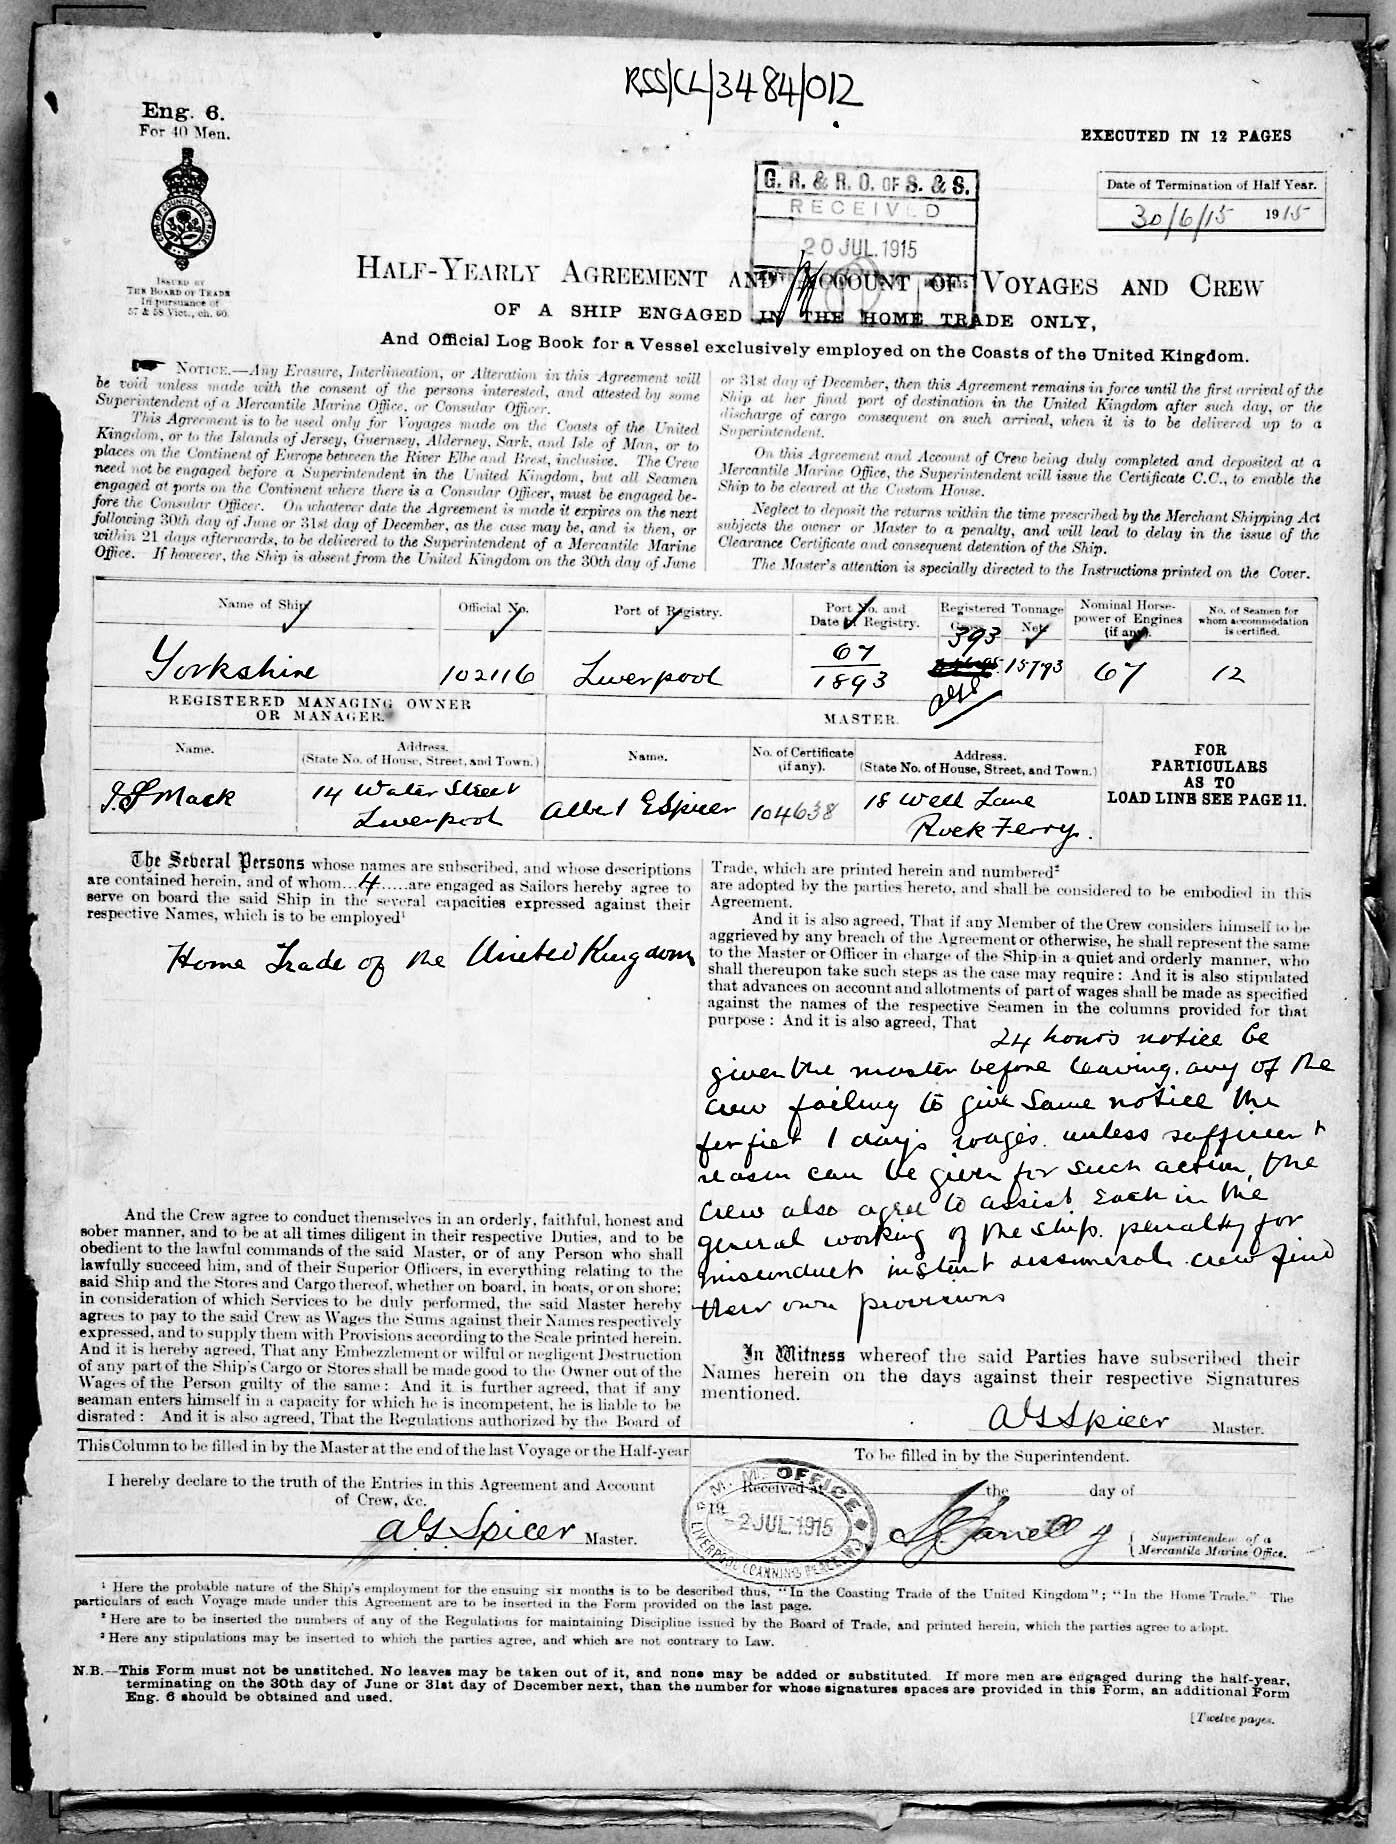 RSS/CL/3484/012
Eng. 6.
For 40 Men.
EXECUTED IN 12 PAGES
ISSUED BY
THE BOARD OF TRADE
In pursuance of
57 & 58 Vict., ch. 60.
G. R. & R. O. OF S. & S.
RECEIVED
20 JUL. 1915
Date of Termination of Half Year.
30/6/15 1915
HALF-YEARLY AGREEMENT AND ACCOUNT OF VOYAGES AND CREW
OF A SHIP ENGAGED IN THE HOME TRADE ONLY,
And Official Log Book for a Vessel exclusively employed on the Coasts of the United Kingdom.
NOTICE.—Any Erasure, Interlineation, or Alteration in this Agreement will
be void unless made with the consent of the persons interested, and attested by some
Superintendent of a Mercantile Marine Office, or Consular Officer.
This Agreement is to be used only for Voyages made on the Coasts of the United
Kingdom, or to the Islands of Jersey, Guernsey, Alderney, Sark, and Isle of Man, or to
places on the Continent of Europe between the River Elbe and Brest, inclusive. The Crew
need not be engaged before a Superintendent in the United Kingdom, but all Seamen
engaged at ports on the Continent where there is a Consular Officer, must be engaged be-
fore the Consular Officer. On whatever date the Agreement is made it expires on the next
following 30th day of June or 31st day of December, as the case may be, and is then, or
within 21 days afterwards, to be delivered to the Superintendent of a Mercantile Marine
Office. If however, the Ship is absent from the United Kingdom on the 30th day of June
or 31st day of December, then this Agreement remains in force until the first arrival of the
Ship at her final port of destination in the United Kingdom after such day, or the
discharge of cargo consequent on such arrival, when it is to be delivered up to a
Superintendent.
On this Agreement and Account of Crew being duly completed and deposited at a
Mercantile Marine Office, the Superintendent will issue the Certificate C.C., to enable the
Ship to be cleared at the Custom House.
Neglect to deposit the returns within the time prescribed by the Merchant Shipping Act
subjects the owner or Master to a penalty, and will lead to delay in the issue of the
Clearance Certificate and consequent detention of the Ship.
The Master's attention is specially directed to the Instructions printed on the Cover.
Name of Ship Official No. Port of Registry. Port No. and Date of Registry. Registered Tonnage Gross Net Nominal Horse-power of Engines (if any). No. of Seamen for whom accommodation is certified.
Yorkshire 102116 Liverpool 67/1893 393 157.93 67 12
REGISTERED MANAGING OWNER
OR MANAGER.
MASTER.
Name. Address. (State No. of House, Street, and Town.) Name. No. of Certificate (if any). Address. (State No. of House, Street, and Town.)
FOR
PARTICULARS
AS TO
LOAD LINE SEE PAGE 11.
Mack 14 Water Street Albert E Spicer 104638 18 Well Lane
Liverpool Rock Ferry.
The Several Persons whose names are subscribed, and whose descriptions
are contained herein, and of whom...4.....are engaged as Sailors hereby agree to
serve on board the said Ship in the several capacities expressed against their
respective Names, which is to be employed¹
Home Trade of the United Kingdom
And the Crew agree to conduct themselves in an orderly, faithful, honest and
sober manner, and to be at all times diligent in their respective Duties, and to be
obedient to the lawful commands of the said Master, or of any Person who shall
lawfully succeed him, and of their Superior Officers, in everything relating to the
said Ship and the Stores and Cargo thereof, whether on board, in boats, or on shore;
in consideration of which Services to be duly performed, the said Master hereby
agrees to pay to the said Crew as Wages the Sums against their Names respectively
expressed, and to supply them with Provisions according to the Scale printed herein.
And it is hereby agreed, That any Embezzlement or wilful or negligent Destruction
of any part of the Ship's Cargo or Stores shall be made good to the Owner out of the
Wages of the Person guilty of the same: And it is further agreed, that if any
seaman enters himself in a capacity for which he is incompetent, he is liable to be
disrated: And it is also agreed, That the Regulations authorized by the Board of
Trade, which are printed herein and numbered²
are adopted by the parties hereto, and shall be considered to be embodied in this
Agreement.
And it is also agreed, That if any Member of the Crew considers himself to be
aggrieved by any breach of the Agreement or otherwise, he shall represent the same
to the Master or Officer in charge of the Ship in a quiet and orderly manner, who
shall thereupon take such steps as the case may require: And it is also stipulated
that advances on account and allotments of part of wages shall be made as specified
against the names of the respective Seamen in the columns provided for that
purpose: And it is also agreed, That
24 hours notice be
given the master before leaving. any of the
crew failing to give same notice the
forfiet 1 day's wages. unless sufficient
reason can be given for such action, the
crew also agree to assist each in the
general working of the ship. penalty for
misconduct instant dissmissal. crew find
their own provisions
In Witness whereof the said Parties have subscribed their
Names herein on the days against their respective Signatures
mentioned.
A E Spicer Master.
This Column to be filled in by the Master at the end of the last Voyage or the Half-year
I hereby declare to the truth of the Entries in this Agreement and Account
of Crew, &c.
A. E. Spicer Master.
To be filled in by the Superintendent.
Received at the day of
M. M. OFFICE
-2 JUL. 1915
LIVERPOOL (CANNING PLACE, W.)
Superintendent of a
Mercantile Marine Office.
¹ Here the probable nature of the Ship's employment for the ensuing six months is to be described thus, "In the Coasting Trade of the United Kingdom"; "In the Home Trade." The
particulars of each Voyage made under this Agreement are to be inserted in the Form provided on the last page.
² Here are to be inserted the numbers of any of the Regulations for maintaining Discipline issued by the Board of Trade, and printed herein, which the parties agree to adopt.
³ Here any stipulations may be inserted to which the parties agree, and which are not contrary to Law.
N.B.—This Form must not be unstitched. No leaves may be taken out of it, and none may be added or substituted. If more men are engaged during the half-year,
terminating on the 30th day of June or 31st day of December next, than the number for whose signatures spaces are provided in this Form, an additional Form
Eng. 6 should be obtained and used.
[Twelve pages.